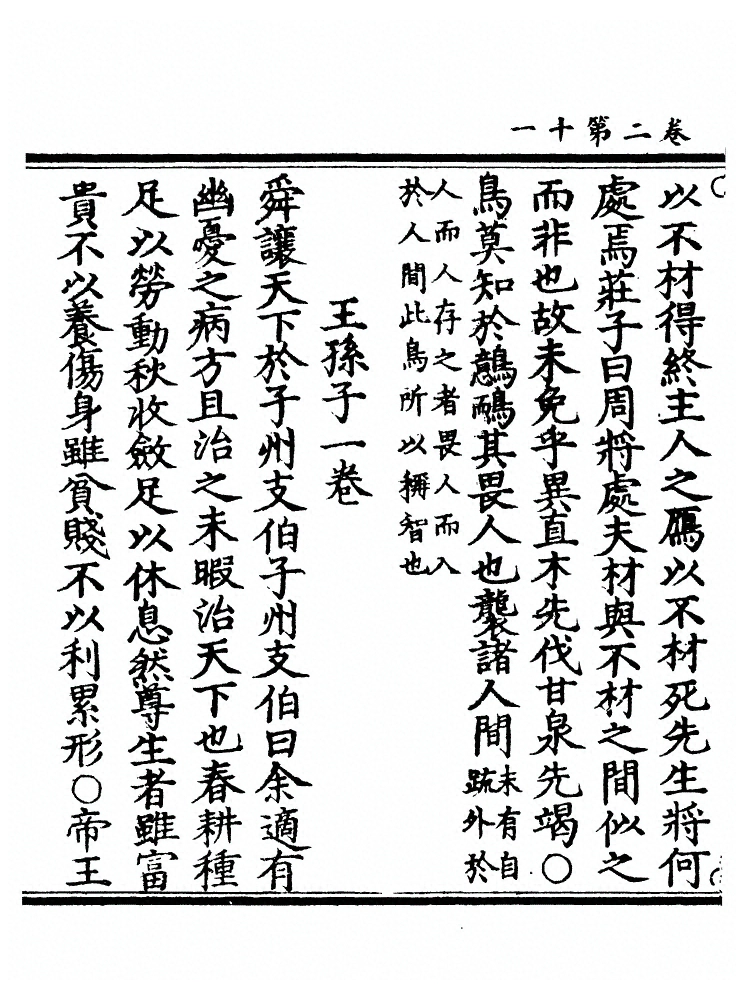 卷二第十一
以不材得終主人之鴈以不材死先生將何
處焉莊子曰周將處夫材與不材之間似之
而非也故未免乎異直木先伐甘泉先竭○
鳥莫知於鷾鴯其畏人也襲諸人間
未有自
疏外於
人而人存之者畏人而入
於人間此鳥所以稱智也
王孫子一卷
舜讓天下於子州支伯子州支伯曰余適有
幽憂之病方且治之未暇治天下也春耕種
足以勞動秋收斂足以休息然尊生者雖富
貴不以養傷身雖貧賤不以利累形○帝王